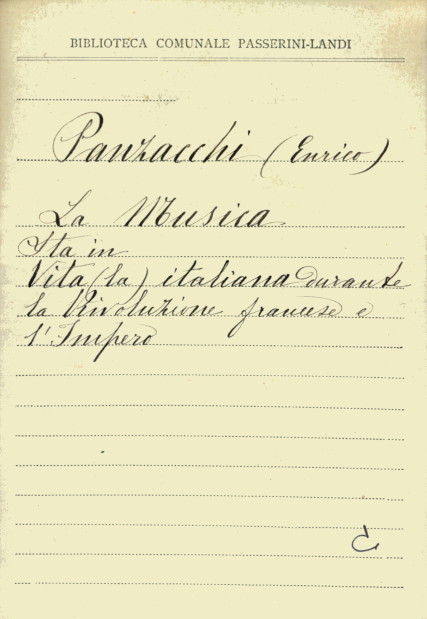 BIBLIOTECA COMUNALE PASSERINI-LANDI
Panzacchi (Enrico)
La Musica
Sta in
Vita (la) italiana durante
la Rivoluzione francese e
l'Impero